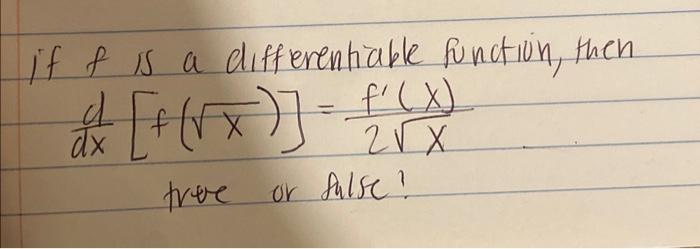 if f is a differentiable function, then
d/dx [f(√x)] = f'(x)/2√x
true or false?